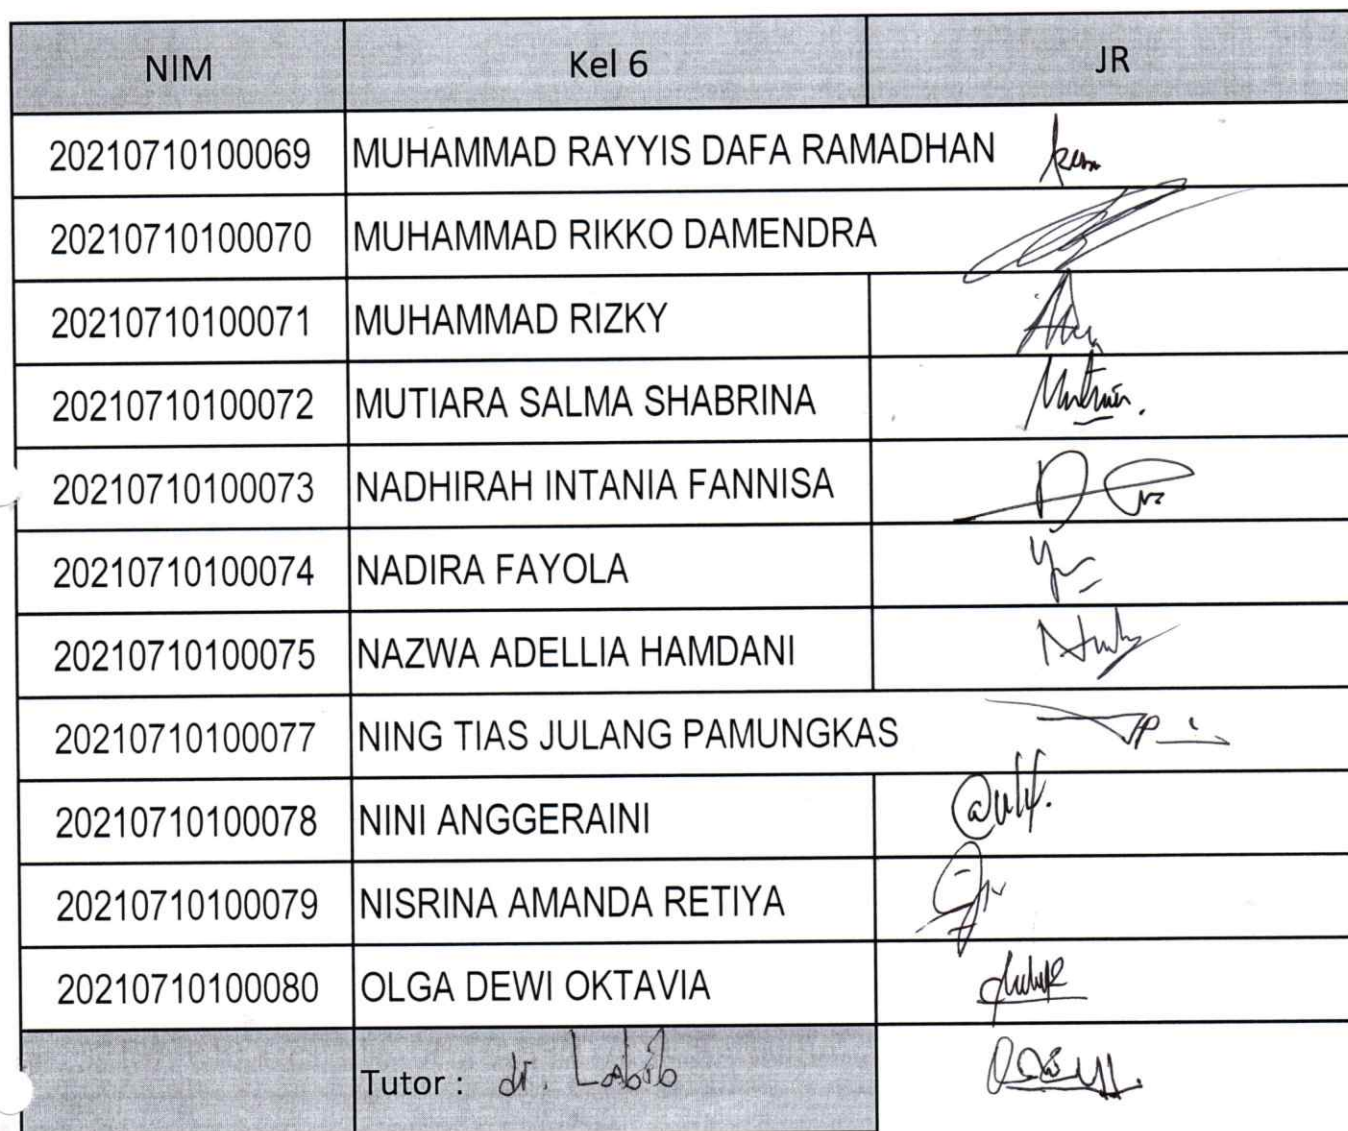 NIM Kel 6 JR
20210710100069 MUHAMMAD RAYYIS DAFA RAMADHAN
20210710100070 MUHAMMAD RIKKO DAMENDRA
20210710100071 MUHAMMAD RIZKY
20210710100072 MUTIARA SALMA SHABRINA
20210710100073 NADHIRAH INTANIA FANNISA
20210710100074 NADIRA FAYOLA
20210710100075 NAZWA ADELLIA HAMDANI
20210710100077 NING TIAS JULANG PAMUNGKAS
20210710100078 NINI ANGGERAINI
20210710100079 NISRINA AMANDA RETIYA
20210710100080 OLGA DEWI OKTAVIA
Tutor : dr. Labib